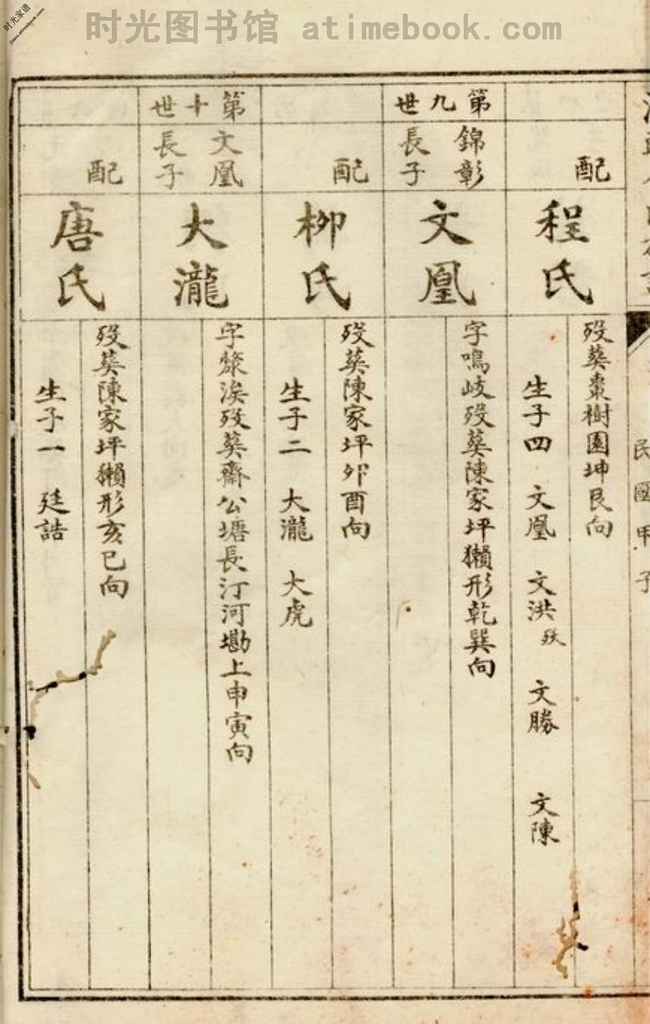 时光图书馆 atimebook.com
时光家谱
民國甲子
配
程氏
歿葬棗樹園坤艮向
生子四 文凰 文洪歿 文勝 文陳
第九世
錦彰
長子
文凰
字鳴岐歿葬陳家坪獺形乾巽向
配
柳氏
歿葬陳家坪卯酉向
生子二 大瀧 大虎
第十世
文凰
長子
大瀧
字漦涘歿葬齋公塘長汀河墈上申寅向
配
唐氏
歿葬陳家坪獺形亥巳向
生子一 廷誥